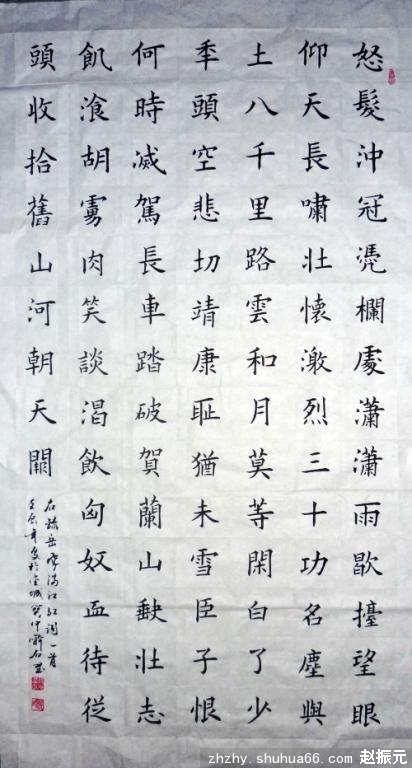 怒髮沖冠凴欄處瀟瀟雨歇擡望眼
仰天長嘯壯懷激烈三十功名塵與
土八千里路雲和月莫等閑白了少
秊頭空悲切靖康耻猶未雪臣子恨
何時滅駕長車踏破賀蘭山缺壯志
飢湌胡虜肉笑談渴飲匈奴血待從
頭收拾舊山河朝天闕
右錄岳飛滿江紅詞一首
壬辰年夏於
zhzhy.shuhua66.com 赵振元